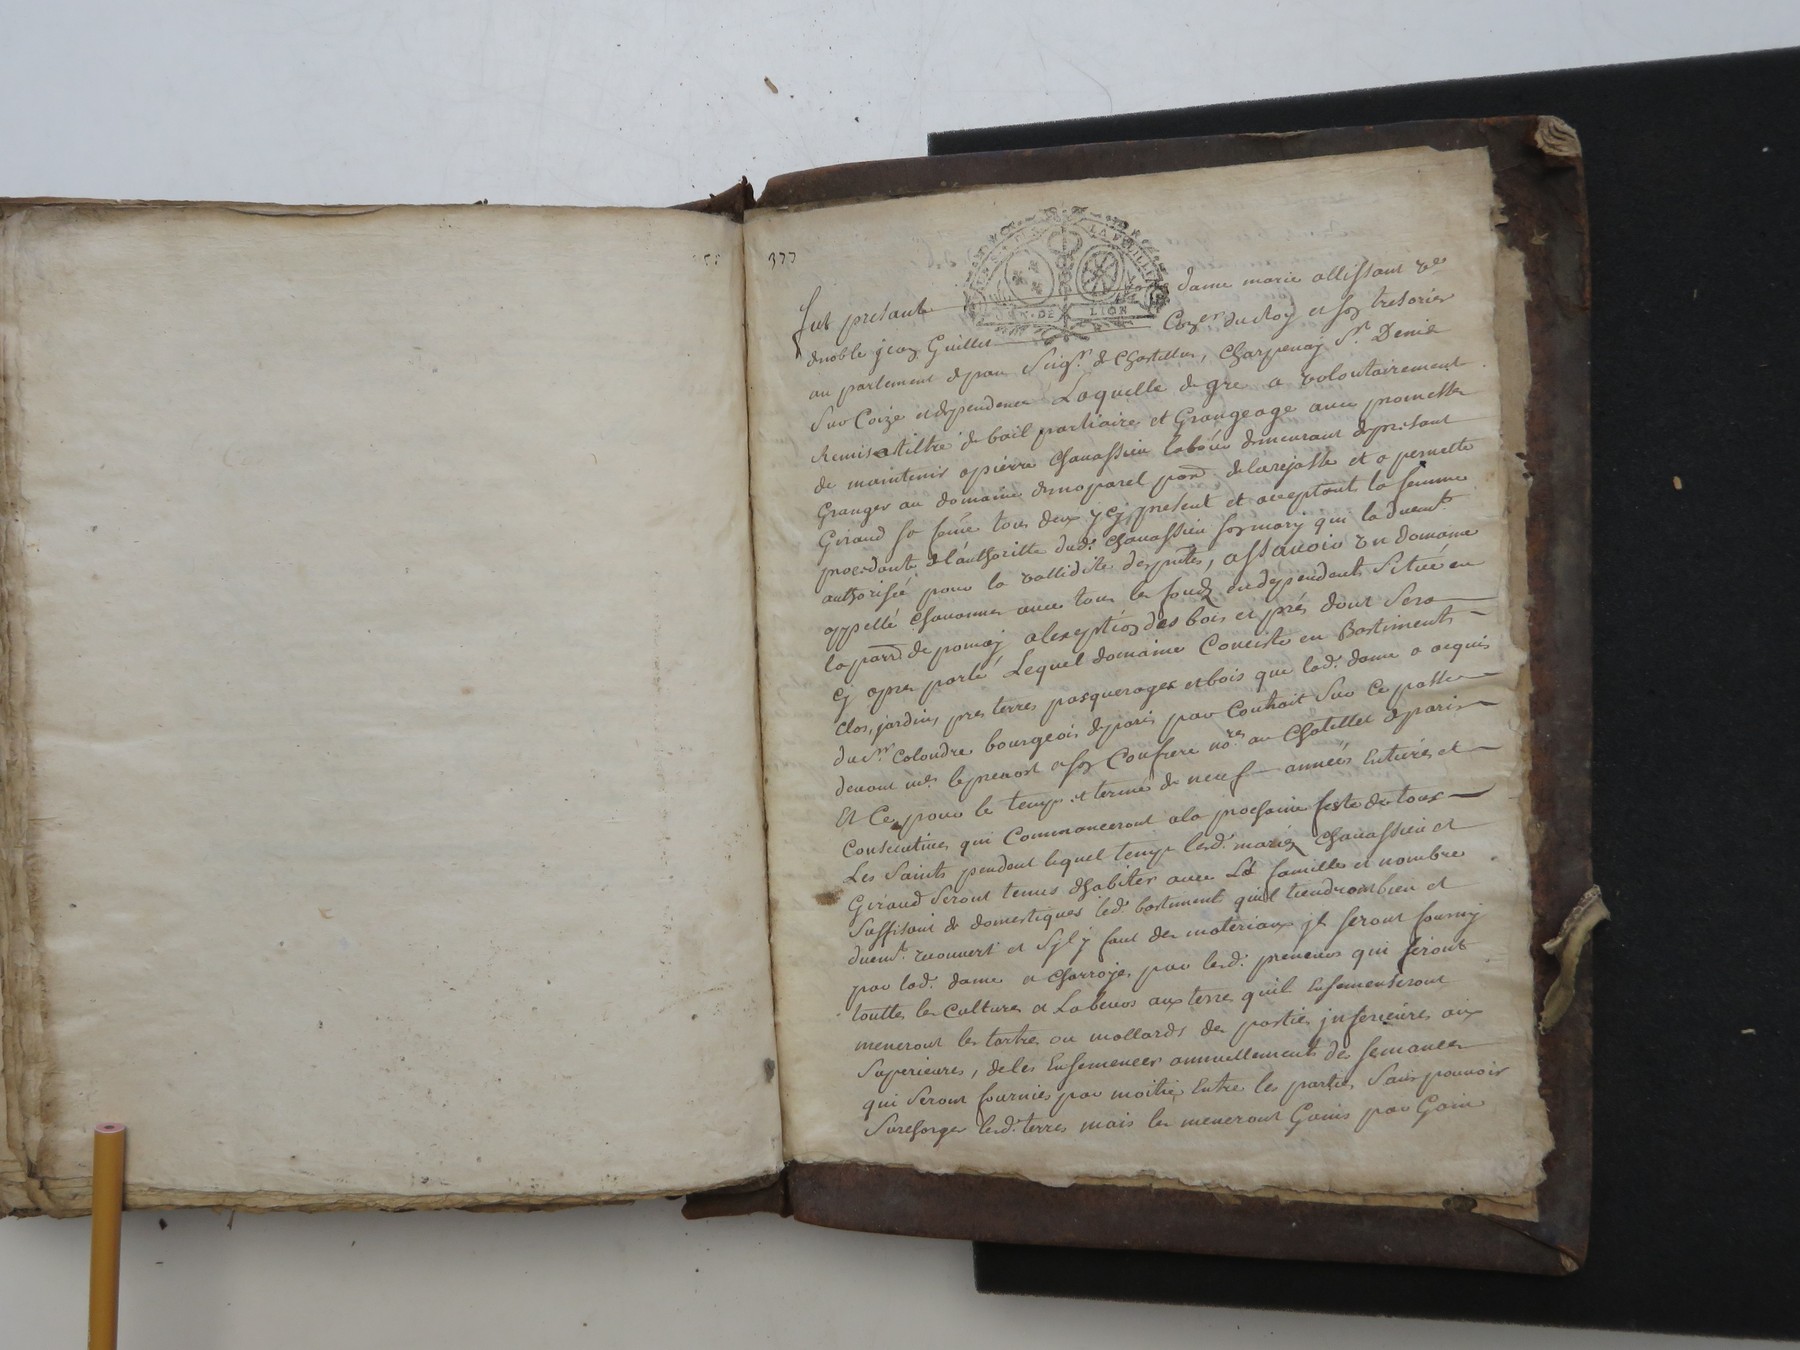 377
Fut présante dame marie allissant ve
de noble jean Guillet Coner du Roy et son tresorier
au parlement de pau Seigr. de Chastillon, Charpenay St. Denis
Sur Coize et dependence Laquelle de gre a volontairement
Remis a tiltre de bail partiaire et Grangeage avec promesse
de maintenir a pierre chanassieu laboureur demeurant de presant
Granger au domaine de parel de larejasse et a pernette
Giraud sa feme tous deux ycy present et acceptant la femme
procedante de l'authoritte dud. chanassieu son mary qui la duemt.
authorisée pour la vallidité des pntes, assavoir un domaine
appellé chavannes avec tous les fondz en dependents Situé en
la parr. de pomey a lexeption des bois et prés dont Sera
cy apres parlé Lequel domaine Conciste en Bastiments
clos, jardins, pres terres pasquerages et bois que lad. dame a acquis
du Sr. Colondre bourgeois de paris par Contrait Sur Ce passe
devant mes. leprevost et son Confrere nores au Chatellet de paris
Et Ce pour le temps et terme de neuf années Entieres et
Consecutives qui Commanceront a la prochaine feste de tous
Les Saints pendant lequel temps lesd. mariez chanassieu et
Giraud Seront tenus d'habiter avec La famille et nombre
Suffisant de domestiques led. bastiment quil tiendront bien et
duemt. recouvert et Syl y faut des materiaux jls seront fourny
par lad. dame et charroyes par lesd. preneurs qui feront
touttes les Cultures et Labeurs aux terre quil Ensemenseront
meneront les tartres ou mollards des parties jnferieures aux
Superieures, de les Ensemencer annuellement des semances
qui Seront fournies par moitié Entre les parties, Sans pouvoir
Surcharger lesd. terres mais les meneront Gains par Gain